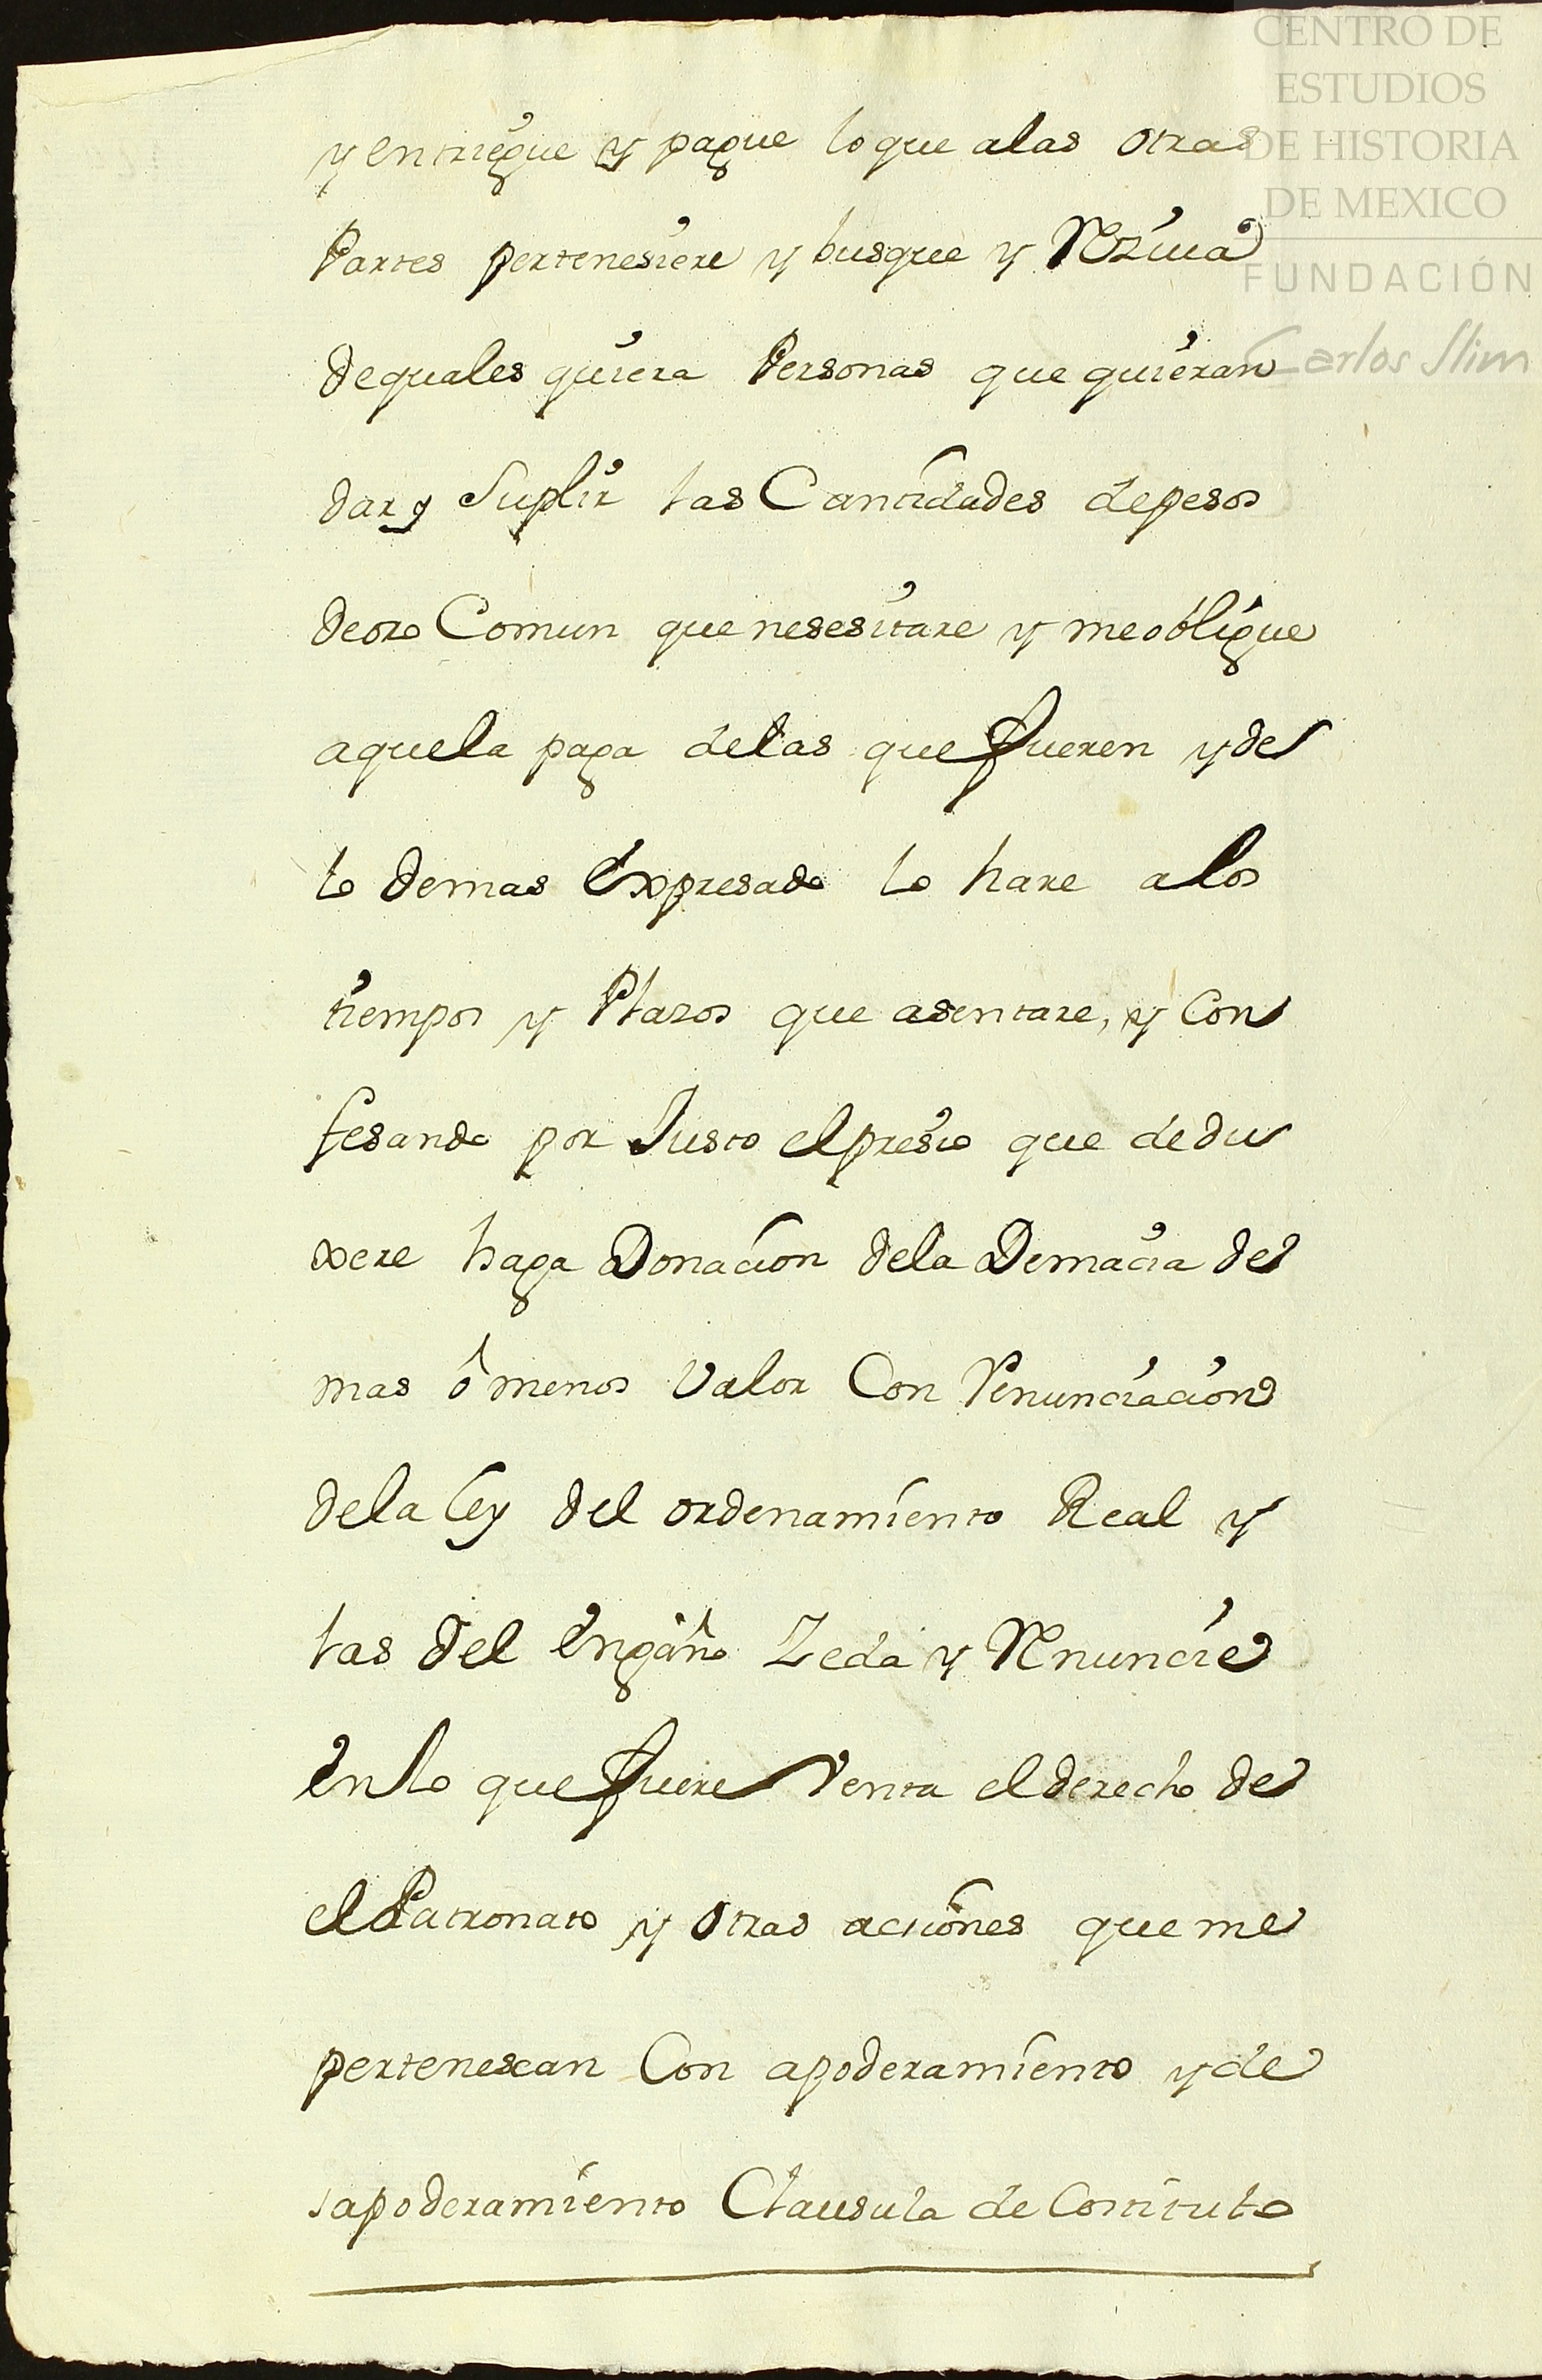 CENTRO DE
ESTUDIOS
DE HISTORIA
DE MEXICO
FUNDACIÓN
Carlos Slim
y entriegue y pague loque alas otras
Partes pertenesiere y busque y Resiua
dequales quiera Personas que quieran
dar y Suplir las Cantidades depesos
deoro Comun que nesesitare y meobligue
aquela paga delas que fueren yde
lo demas Expresado lo hare alos
tiempos y Plasos que asentare, y Con
fesando por Justo elpresio que dedu
xere haga Donacion dela Demacia del
mas ó menos Valor Con Renunciacion
dela Ley del ordenamiento Real y
las del Engaño Zeda y Renuncie
Enlo que fuere Venta elderecho de
el Patronato y otras acsiones que me
pertenescan Con apoderamiento yde
sapoderamiento Clausula de Constituto